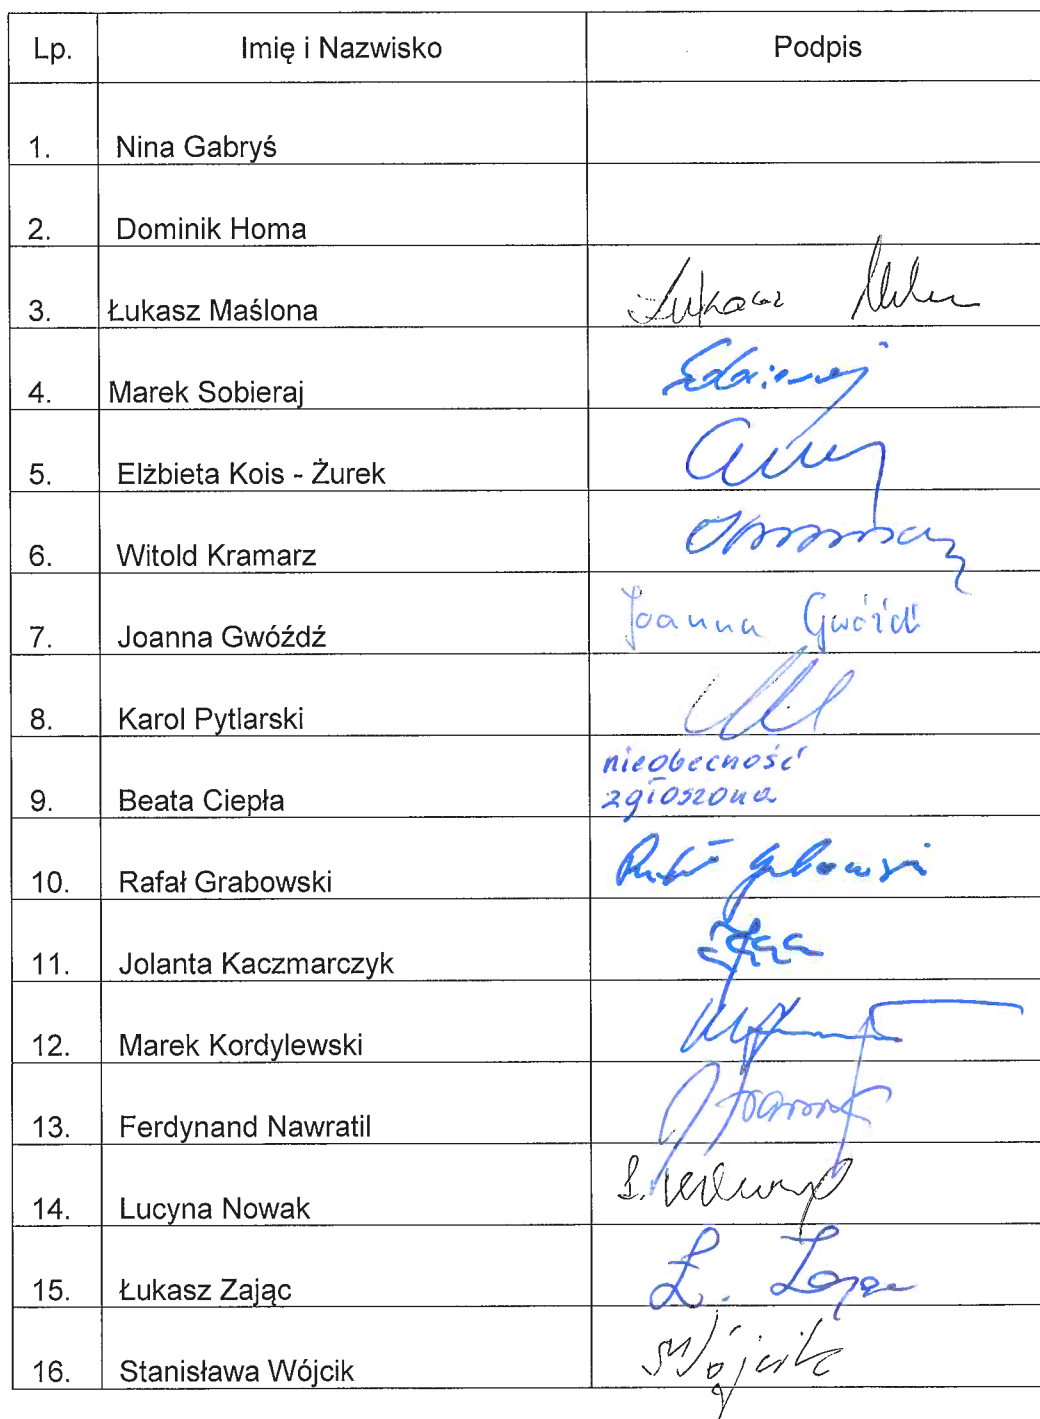 Lp. Imię i Nazwisko Podpis
1. Nina Gabryś
2. Dominik Homa
3. Łukasz Maślona Łukasz
4. Marek Sobieraj Sobieraj
5. Elżbieta Kois - Żurek
6. Witold Kramarz
7. Joanna Gwóźdź Joanna Gwóźdź
8. Karol Pytlarski
nieobecność
9. Beata Ciepła zgłoszona
10. Rafał Grabowski Rafał Grabowski
11. Jolanta Kaczmarczyk
12. Marek Kordylewski
13. Ferdynand Nawratil
14. Lucyna Nowak
15. Łukasz Zając Ł. Zając
16. Stanisława Wójcik SWójcik